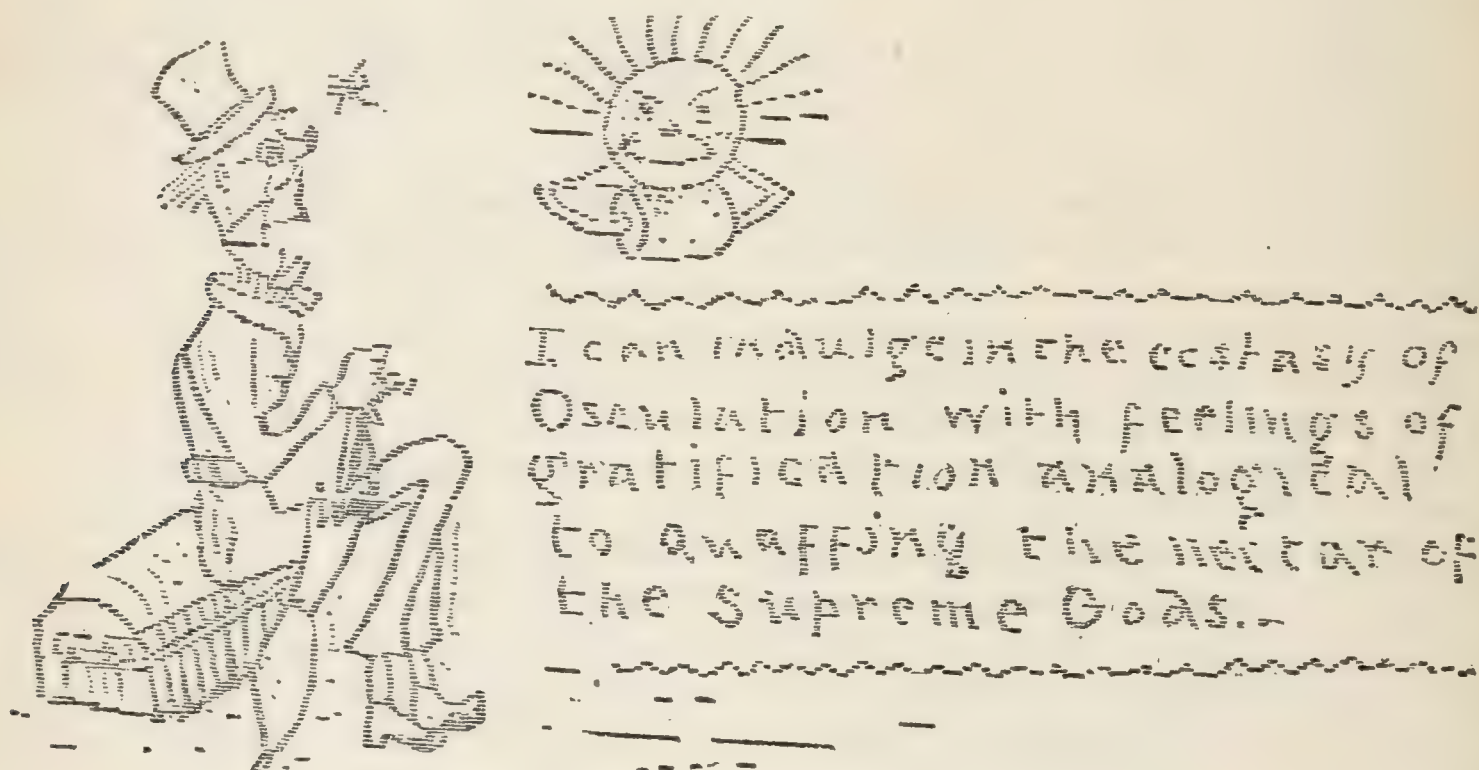 I can indulge in the ecstasy of
Osculation with feelings of
gratification analogical
to quaffing the nectar of
the Supreme Gods..-